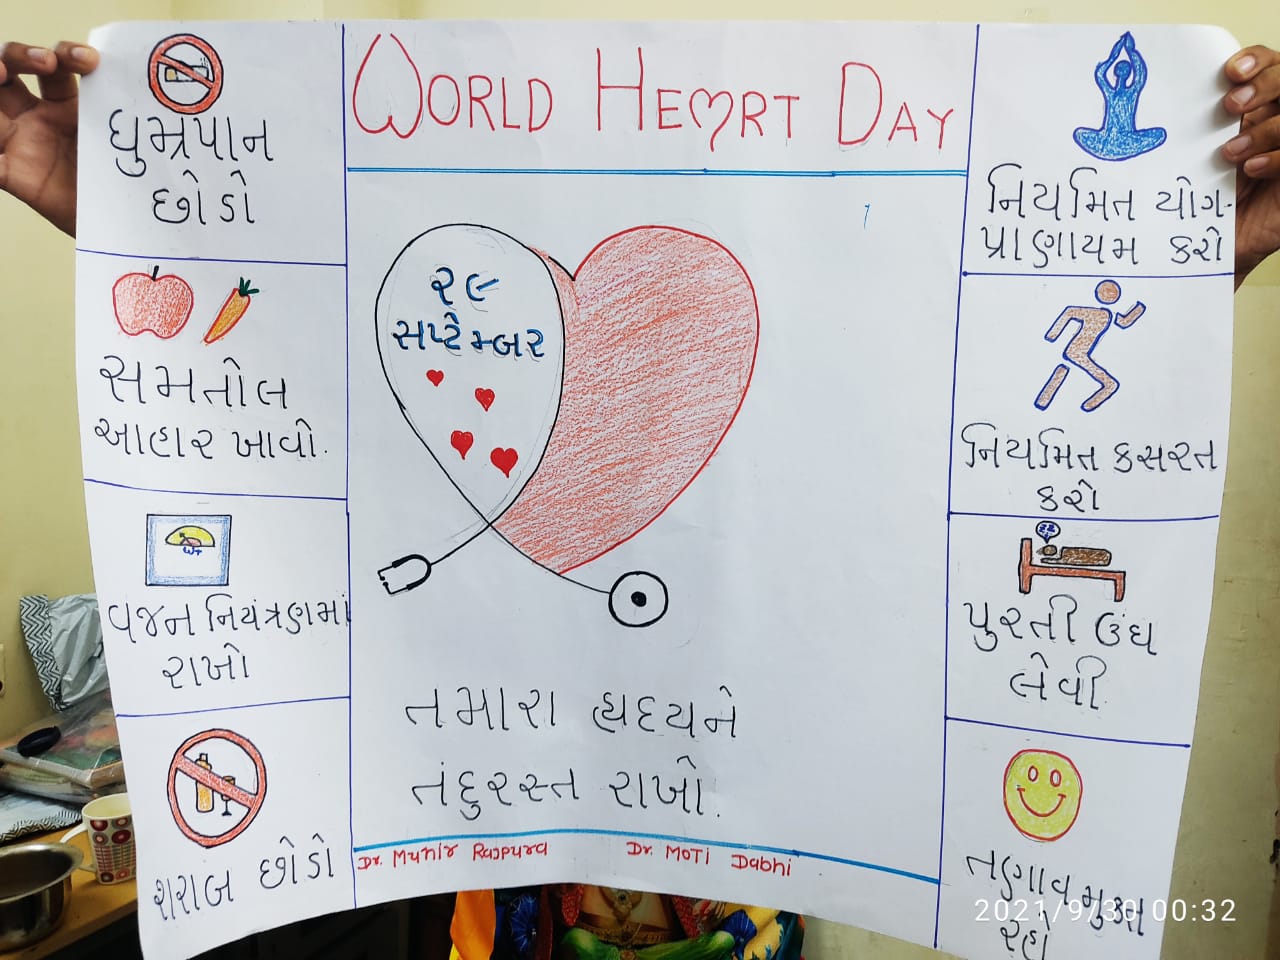 WORLD HEART DAY
ધુમ્રપાન
છોડો
સમતોલ
આહાર ખાવો.
WT
વજન નિયંત્રણમાં
રાખો
શરાબ છોડો
૨૯
સપ્ટેમ્બર
તમારા હ્રદયને
તંદુરસ્ત રાખો.
Dr. Munir Rajpura
Dr. MoTi Dabhi
નિયમિત યોગ-
પ્રાણાયમ કરો
નિયમિત કસરત
કરો
ZZ
પુરતી ઉંઘ
લેવી.
તણાવ મુક્ત
રહો
2021/9/30 00:32